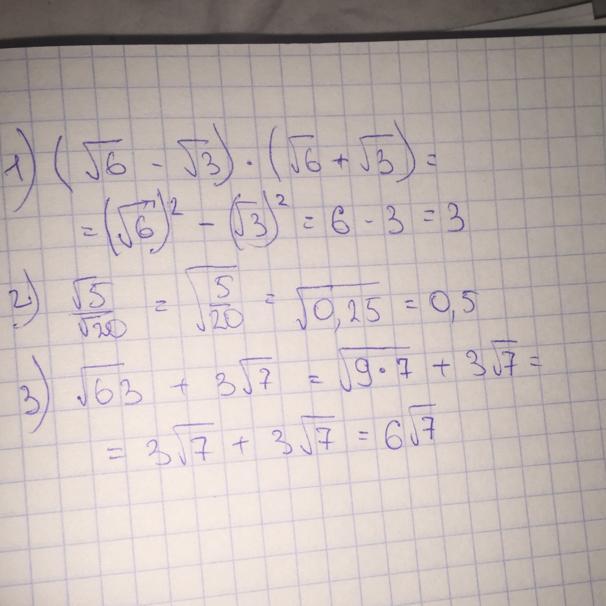 1) (√6 - √3) · (√6 + √3) =
= (√6)² - (√3)² = 6 - 3 = 3
2) √5/√20 = √(5/20) = √0,25 = 0,5
3) √63 + 3√7 = √9·7 + 3√7 =
= 3√7 + 3√7 = 6√7